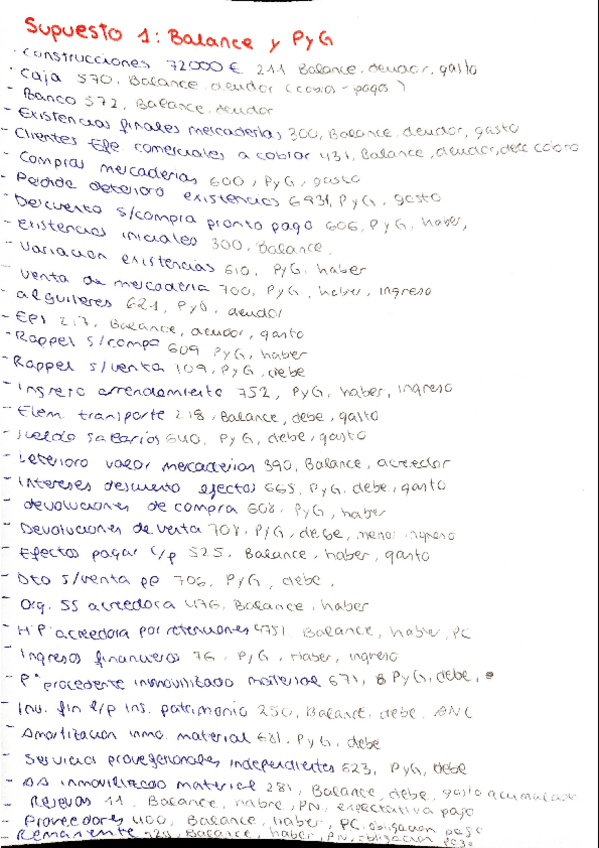 Supuesto 1: Balance y PyG
· Construcciones 72000 € 211 Balance. deudor, gasto
· Caja 570. Balance. deudor (cobros - pagos)
- Banco 572, Balance. deudor
- Existencias finales mercaderias 300, Balance, deudor, gasto
- Clientes Efe comerciales a cobrar 431, Balance, deudor, cobro
- Compras mercaderias 600, PyG, gasto
- Perdida deterioro existencias 6931, PyG, gasto
- Descuento s/compra pronto pago 606, PyG, haber,
- existencias iniciales 300, Balance.
- Variacion existencias 610. PyG. haber
- venta de mercaderia 700, PyG, haber, ingreso
- alquileres 621, PyG, deudor
- EPI 217, Balance, deudor, gasto
- Rappel s/compra 609 PyG, haber
- Rappel s/venta 109, PyG, debe
- Ingreso arrendamiento 752, PyG, haber, ingreso
- Elem. transporte 218, Balance, debe, gasto
- sueldo salarios 640. PyG, debe, gasto
- Deterioro valor mercaderias 390, Balance, acreedor
- Intereses descuento efectos 665, PyG. debe, gasto
- devoluciones de compra 608. PyG, haber
- Devoluciones de venta 708. PyG, debe, menor ingreso
- Efectos pagar c/p 525. Balance, haber, gasto
- Dto s/venta pp 706, PyG, debe.
- Org. SS acreedora 476, Balance, haber
- HP acreedora por retenciones 4751. Balance, haber, PC
- Ingresos financieros 76. PyG. Haber, ingreso
- Pª procedente inmovilizado material 671, PyG, debe,
- Inv. fin l/p ins. patrimonio 250, Balance. debe. ANC
- Amortizacion inmo. material 681. PyG, debe
- Servicios profesionales independientes 623, PyG, debe
- AA inmovilizado material 281, Balance, debe, gasto acumulado
- Reservas 11. Balance, habre, PN, expectativa pago
- Proveedores 400, Balance, haber, PC, obligacion pago
- Remanente 120, Balance, haber, PN, obligacion pago